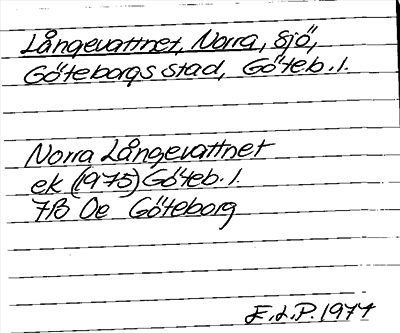 Långevattnet, Norra, Sjö,
Göteborgs stad, Göteb. l.
Norra Långevattnet
ek (1975) Göteb. l.
7B Oe Göteborg
E.L.P. 1977